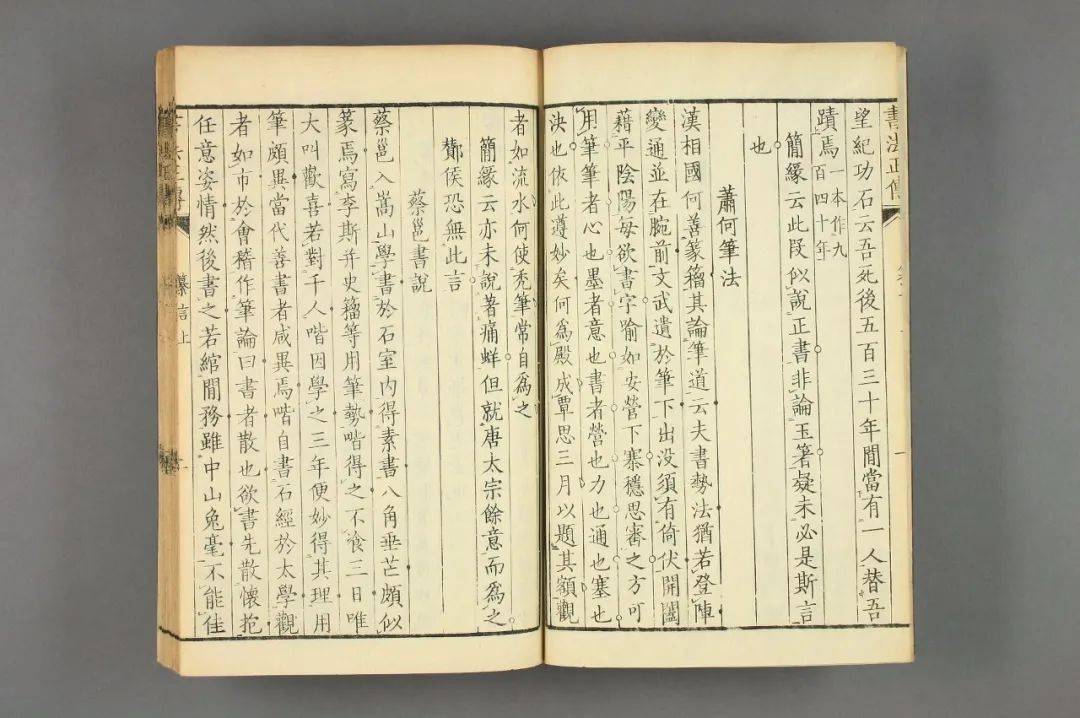 書法正傳
望紀功石云吾死後五百三十年間當有一人替吾
蹟焉一本作九
百四十年
簡緣云此段似說正書非論玉箸疑未必是斯言
也
蕭何筆法
漢相國何善篆籀其論筆道云夫書勢法猶若登陣
變通並在腕前文武遺於筆下出没須有倚伏開闔
藉乎陰陽每欲書字喻如安營下寨穩思審之方可
用筆筆者心也墨者意也書者營也力也通也塞也
決也依此遵妙矣何爲殿成覃思三月以題其額觀
者如流水何使秃筆常自爲之
簡緣云亦未說著痛蛘但就唐太宗餘意而爲之
酇侯恐無此言
蔡邕書說
蔡邕入嵩山學書於石室內得素書八角垂芒頗似
篆焉寫李斯并史籀等用筆勢喈得之不飡三日唯
大叫歡喜若對千人喈因學之三年便妙得其理用
筆頗異當代善書者咸異焉喈自書石經於太學觀
者如市於會稽作筆論曰書者散也欲書先散懷抱
任意姿情然後書之若綰閒務雖中山兔毫不能佳
纂言上